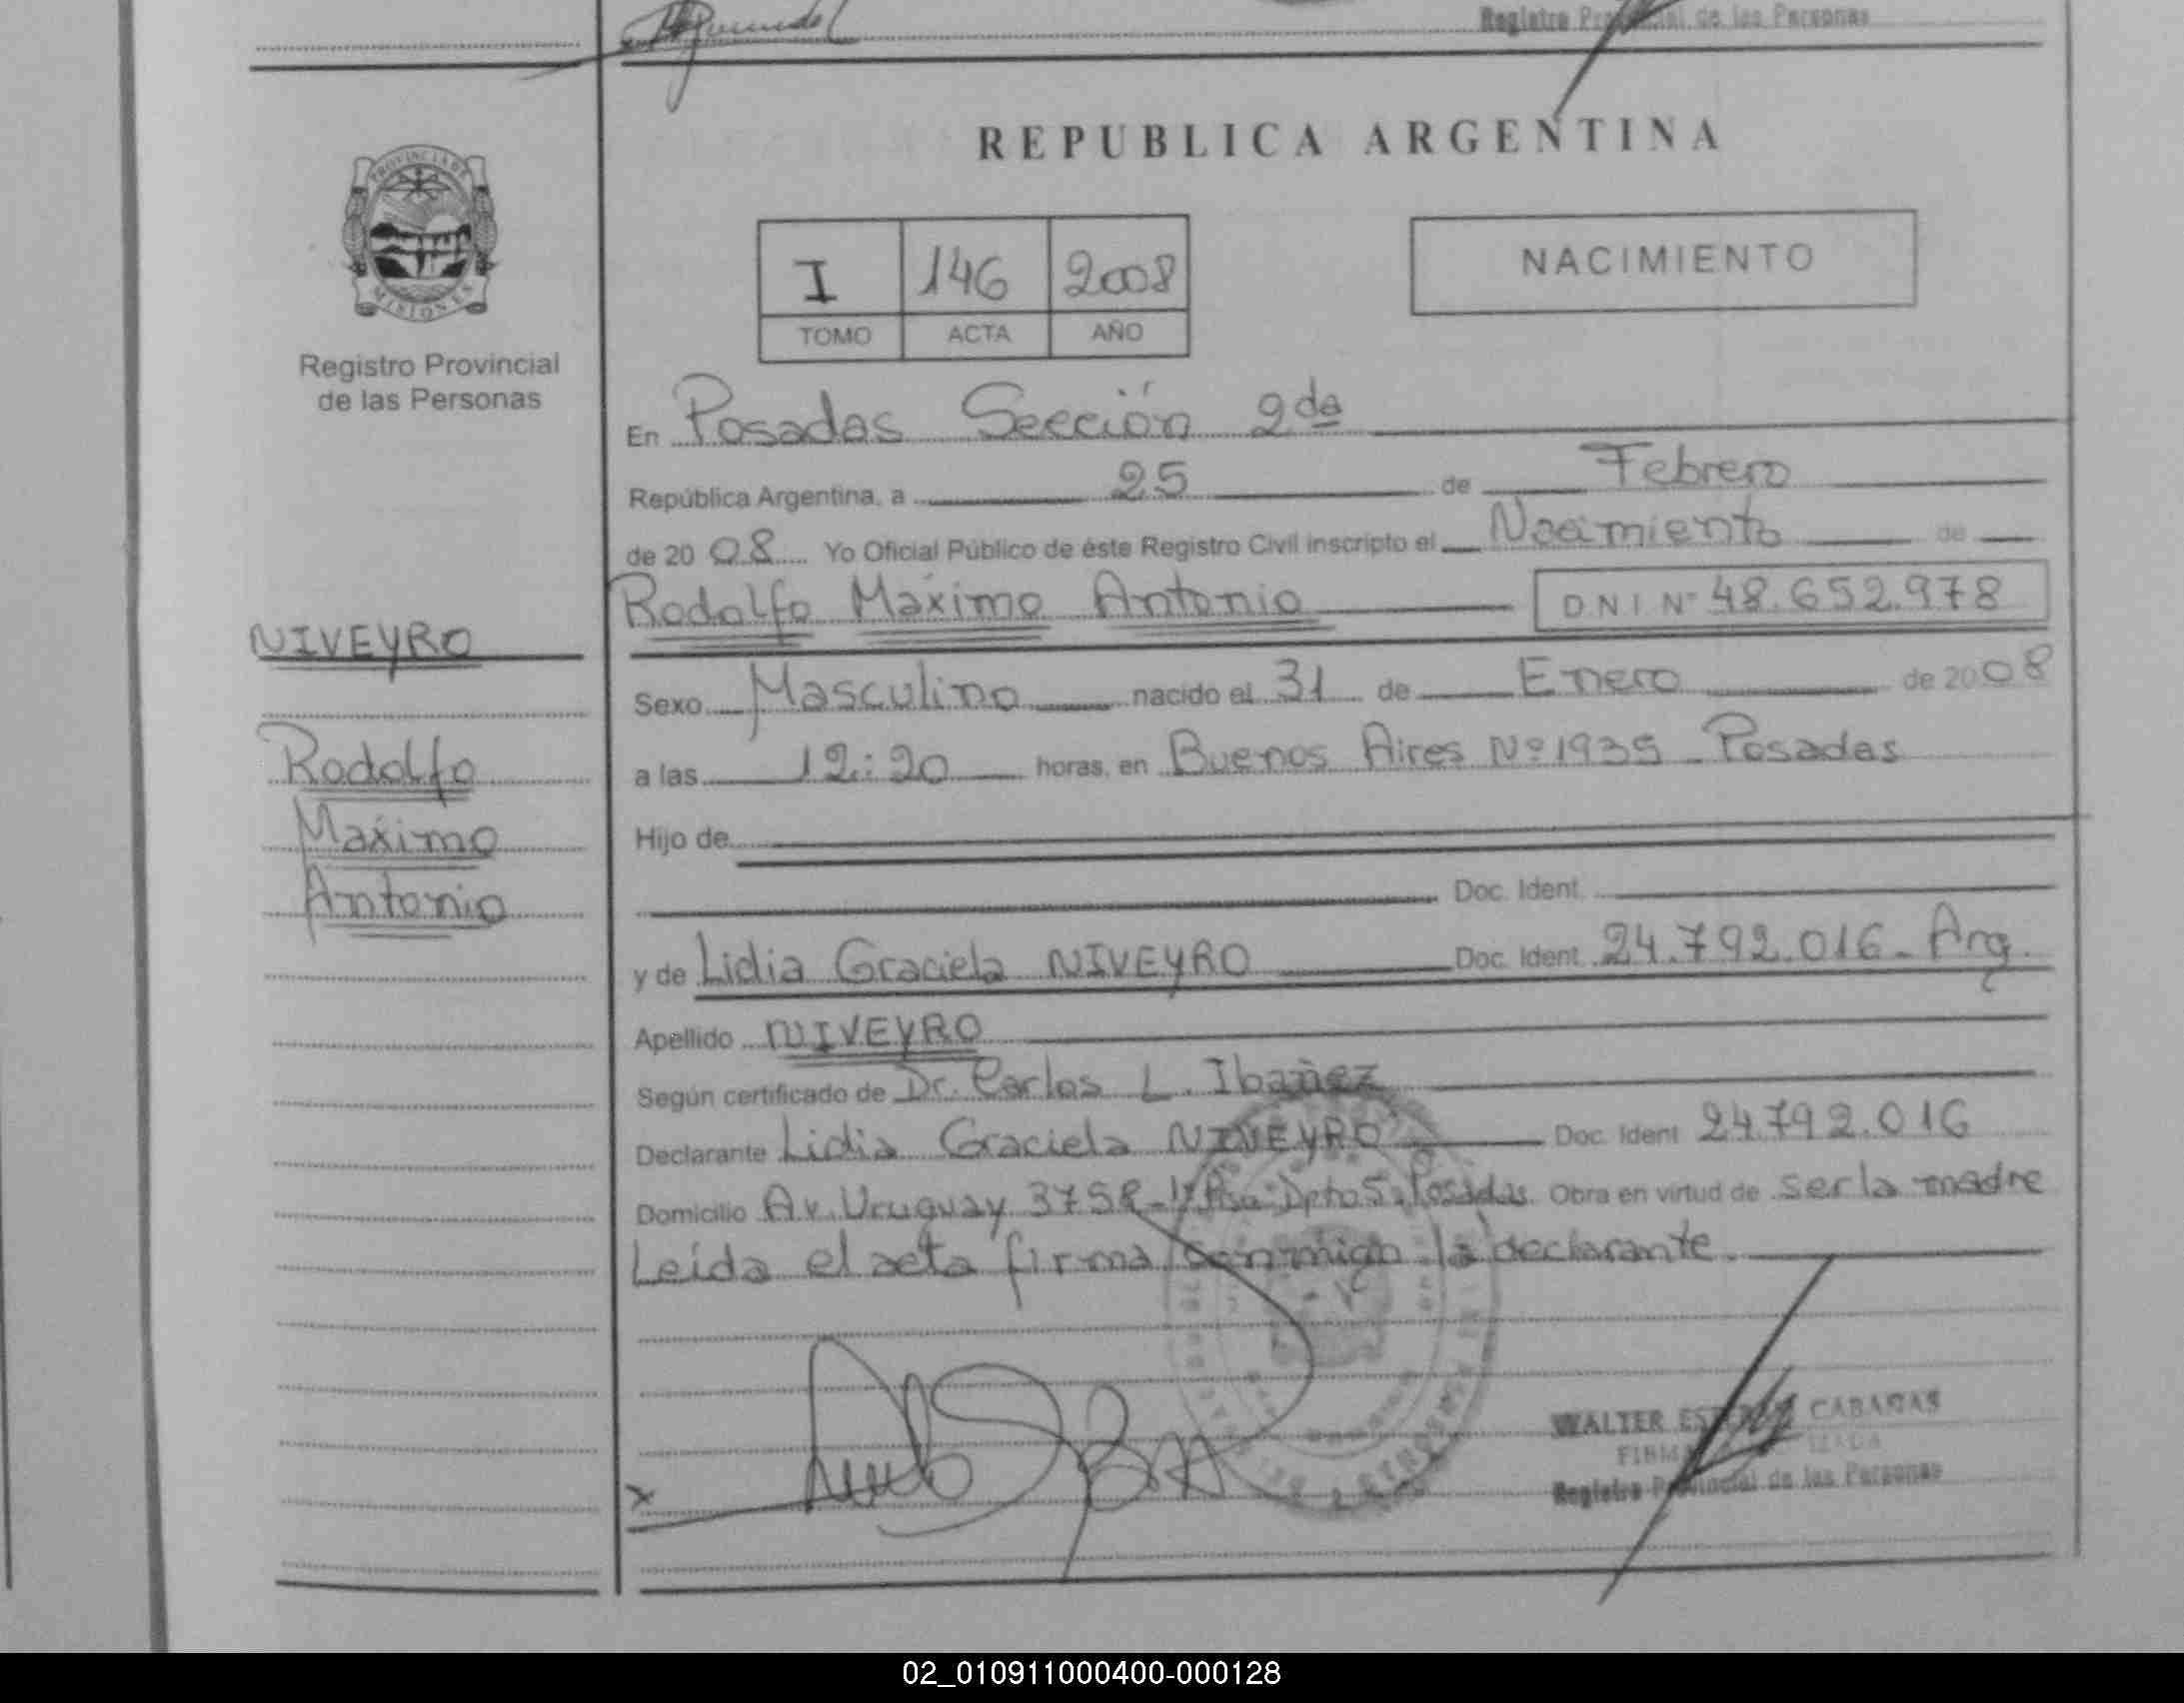 Registro Provincial de las Personas
REPUBLICA ARGENTINA
PROVINCIA DE
MISIONES
Registro Provincial
de las Personas
I 146 2008
TOMO ACTA AÑO
NACIMIENTO
En Posadas Sección 2da
República Argentina, a 25 de Febrero
de 2008 Yo Oficial Público de éste Registro Civil inscripto el Nacimiento de
Rodolfo Máximo Antonio D.N.I. Nº 48.652.978
NIVEYRO
Rodolfo
Máximo
Antonio
Sexo Masculino nacido el 31 de Enero de 2008
a las 12:20 horas, en Buenos Aires Nº 1935 - Posadas
Hijo de
Doc. Ident.
y de Lidia Graciela NIVEYRO Doc. Ident. 24.792.016 - Arg.
Apellido NIVEYRO
Según certificado de Dr. Carlos L. Ibañez
Declarante Lidia Graciela NIVEYRO Doc. Ident 24.792.016
Domicilio Av. Uruguay 3758 Dpto 5 Posadas Obra en virtud de ser la madre
Leída el acta firma conmigo la declarante.
WALTER CABAÑAS
Registro Provincial de las Personas
02_010911000400-000128